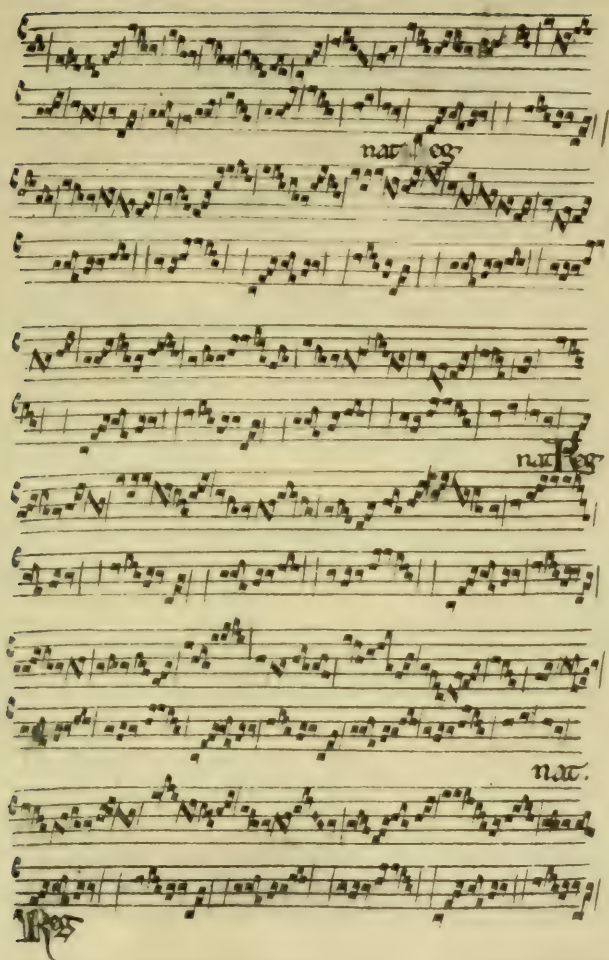 nat Reg
nat Reg
nat.
Reg